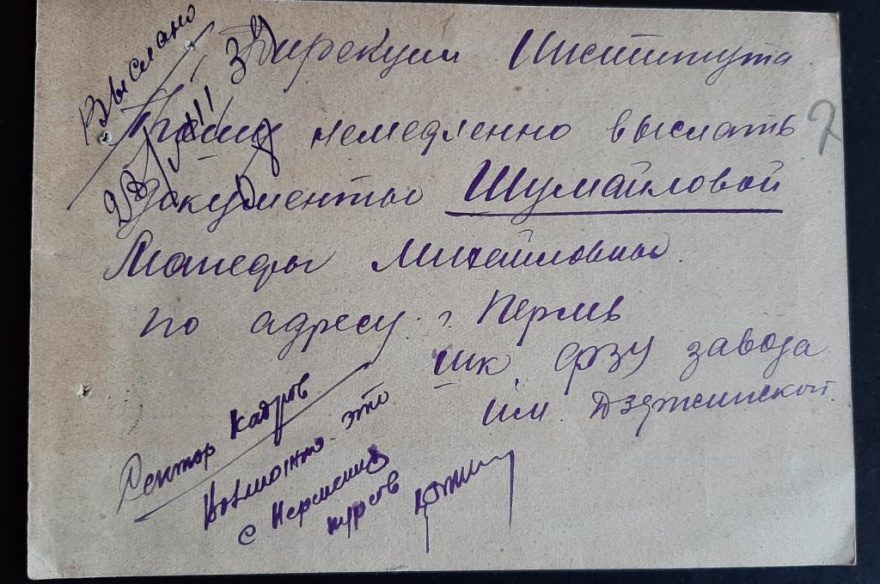 Выслано
Дирекции Института
Прошу немедленно выслать
документы Шумайловой
Михайловны
по адресу г. Пермь
шк ФЗУ завода
им. Дзержинской
Сектор кадров
Возможно это
с
курсов
2